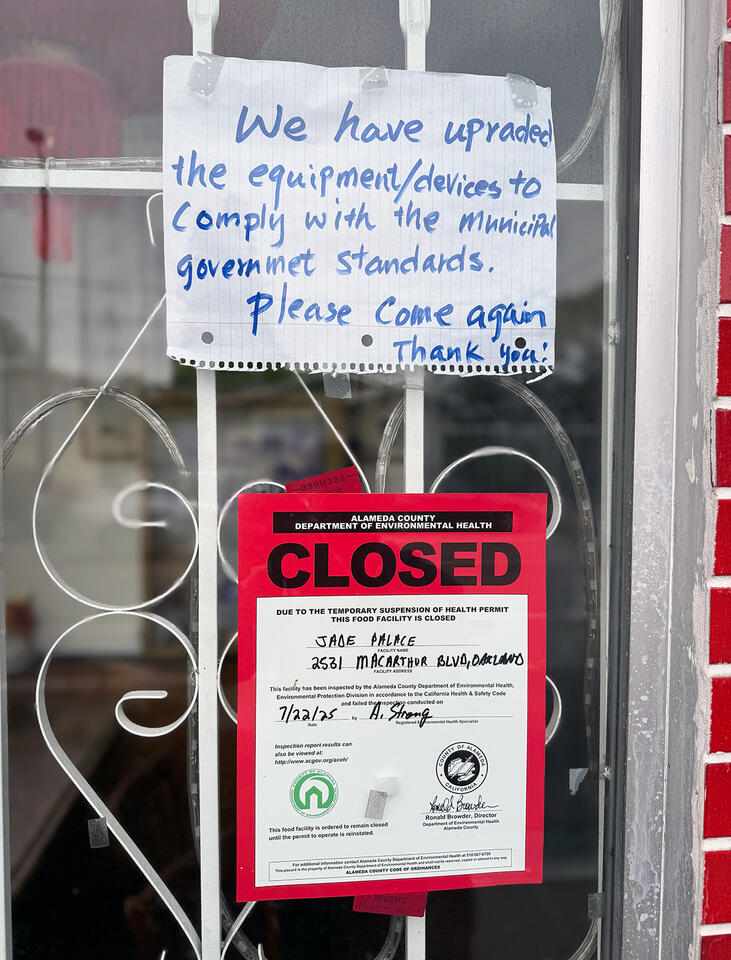 We have upraded
the equipment/devices to
Comply with the municipal
governmet standards.
Please Come again
Thank you!
SECURED
ALAMEDA COUNTY
DEPARTMENT OF ENVIRONMENTAL HEALTH
CLOSED
DUE TO THE TEMPORARY SUSPENSION OF HEALTH PERMIT
THIS FOOD FACILITY IS CLOSED
JADE PALACE
FACILITY NAME
2531 MACARTHUR BLVD, OAKLAND
FACILITY ADDRESS
This facility has been inspected by the Alameda County Department of Environmental Health,
Environmental Protection Division in accordance to the California Health & Safety Code
and failed the inspection conducted on
7/22/25 by A. Strong
Date Registered Environmental Health Specialist
Inspection report results can
also be viewed at:
http://www.acgov.org/aceh/
COUNTY OF ALAMEDA
CALIFORNIA
Ronald Browder
Ronald Browder, Director
Department of Environmental Health
Alameda County
This food facility is ordered to remain closed
until the permit to operate is reinstated.
For additional information contact Alameda County Department of Environmental Health at 510-567-6700
This placard is the property of Alameda County Department of Environmental Health and shall not be removed, copied or altered in any way
ALAMEDA COUNTY CODE OF ORDINANCES